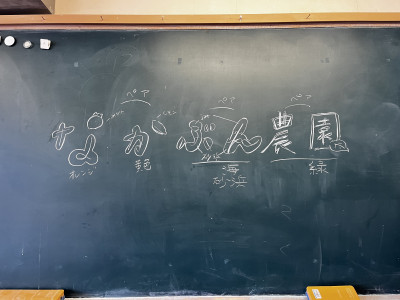 ペア ペア ペア
なかぶん農園
オレンジ 麺 海 緑
砂浜